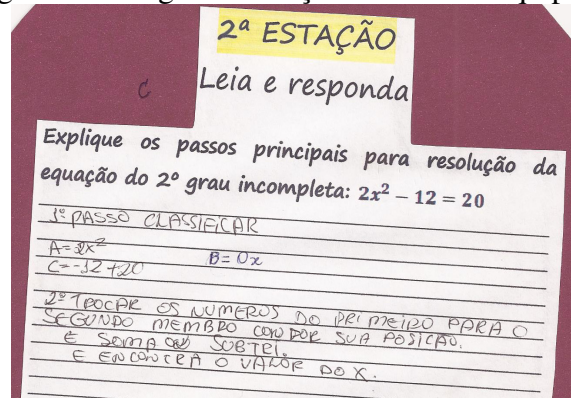 2ª ESTAÇÃO
C
Leia e responda
Explique os passos principais para resolução da
equação do 2º grau incompleta: 2x² – 12 = 20
1º PASSO CLASSIFICAR
A=2x² B=0x
C=-12+20
2º TROCAR OS NUMEROS DO PRIMEIRO PARA O
SEGUNDO MEMBRO SUA POSICÃO.
E SOMA OU SUBTRI.
E ENCONTRA O VALOR DO X.